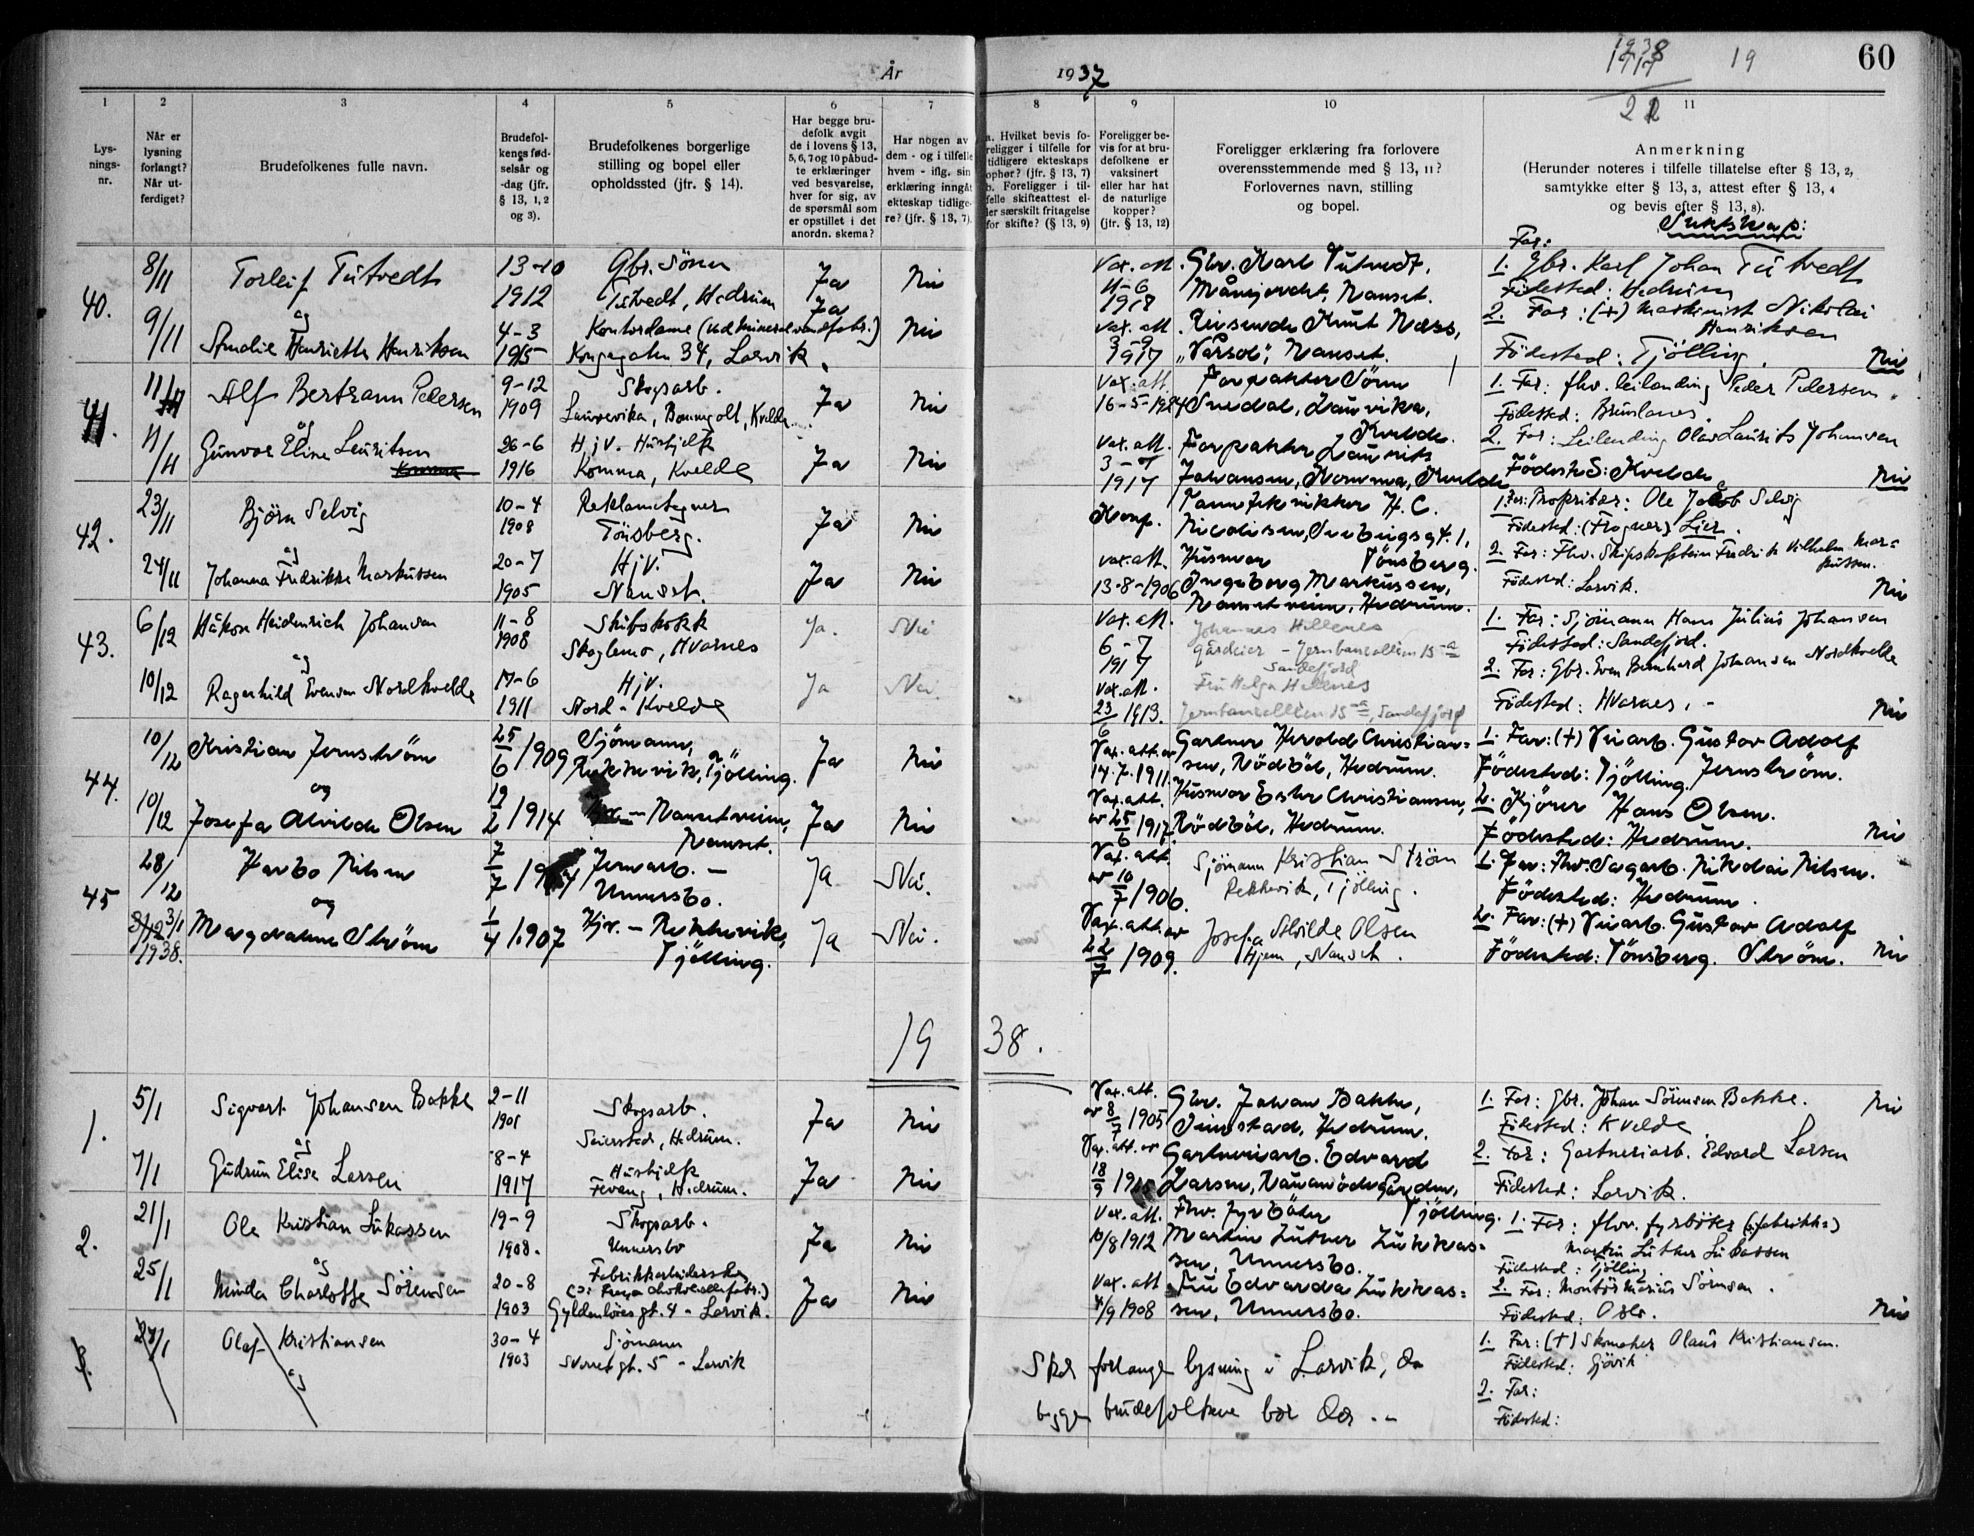 År 1937
1938
1917
21
19
60
1 2 3 4 5 6 7 8 9 10 11
Lys-
nings-
nr.
Når er
lysning
forlangt?
Når ut-
ferdiget?
Brudefolkenes fulle navn.
Brudefol-
kenes fød-
selsår og
-dag (jfr.
§ 13, 1, 2
og 3).
Brudefolkenes borgerlige
stilling og bopel eller
opholdssted (jfr. § 14).
Har begge bru-
defolk avgit
de i lovens § 13,
5, 6, 7 og 10 påbud-
te erklæringer
ved besvarelse,
hver for sig, av
de spørsmål som
er opstillet i det
anordn. skema?
Har nogen av
dem - og i tilfelle
hvem - iflg. sin
erklæring inngått
ekteskap tidlige-
re? (jfr. § 13, 7).
a. Hvilket bevis fo-
religger i tilfelle for
tidligere ekteskaps
ophør? (jfr. § 13, 7)
b. Foreligger i til-
felle skifteattest el-
ler særskilt fritagelse
for skifte? (§ 13, 9)
Foreligger be-
vis for at bru-
defolkene er
vaksinert
eller har hat
de naturlige
kopper?
(jfr. § 13, 12)
Foreligger erklæring fra forlovere
overensstemmende med § 13, 11?
Forlovernes navn, stilling
og bopel.
Anmerkning
(Herunder noteres i tilfelle tillatelse efter § 13, 2,
samtykke etter § 13, 3, attest efter § 13, 4
og bevis efter § 13, 8).
Slektskap:
40.
8/11
Torleif Tutvedt
13-10
1912
Gbr. Sönn
Tutvedt, Hedrum
Ja
Nei
Vax. att.
11-6
1918
Gbr. Karl Tutvedt,
Månejordet, Nanset.
Far:
1. Gbr. Karl Johan Tutvedt
Födested: Hedrum
og
9/11
Amalie Henriette Henriksen
4-3
1915
Kontordame (ved Mineralvandfabr.)
Kongegaten 34, Larvik.
Ja
Nei
Vax. att.
3-9
1917
Reisende Knut Næss,
"Vårsol", Nanset.
2. Far: (+) Maskinist Nikolai
Henriksen
Födested: Tjölling.
Nei
41.
11/11
Alf Bertram Pedersen
9-12
1909
Skogsarb.
Laurvevika, Bommgolt, Kvelde
Ja
Nei
Vax. att.
16-5-1924
Forpakter Sönn
Snedal, Laurvika,
Kvelde.
1. Far: fhv. leilending Peder Pedersen.
Födested: Brunlanes.
og
11/11
Gunvor Eline Lauritsen
26-6
1916
Hjv. Hushjelp
Komma, Kvelde
Ja
Nei
Vax. att.
3-7
1917
Forpakter Laurits
Johansen, Komma, Kvelde
2. Far: Leilending Olav Laurits Johansen
Födested: Kvelde
Nei
42.
23/11
Björn Selvig
10-4
1908
Reklametegner
Tönsberg.
Ja
Nei
Konf.
Tanntekniker H. C.
Nicolaisen, Svebingsgt. 1,
Tönsberg.
1. Far: Propritær: Ole Jakob Selvig
Födested: (Frogner) Lier.
og
24/11
Johanna Fredrikke Markussen
20-7
1905
Hjv.
Nanset.
Ja
Nei
vax. att.
13-8-1906
Husmor
Ingeborg Markussen,
Nansetveien, Hedrum.
2. Far: Fhv. Skipskaptein Fredrik Vilhelm Mar=
kussen.
Födested: Larvik.
Nei
43.
6/12
Håkon Heidenreich Johansen
11-8
1908
Skibskokk
Skoglemo, Hvarnes
Ja.
Nei
Vax. att.
6-7
1917
Johannes Hillenes
Gårdeier - Jernbanealleen 15-a
Sandefjord
1. Far: Sjömann Hans Julius Johansen
Födested: Sandefjord.
og
10/12
Ragnhild Evensen Nordkvelde
17-6
1911
Hjv.
Nord-Kvelde
Ja
Nei.
Vax. att.
23/6 1913.
Fru Helga Hillenes
Jernbanealleen 15-a, Sandefjord
2. Far: Gbr. Even Bernhard Johansen Nordkvelde
Födested: Hvarnes. -
Nei
44.
10/12
Kristian Jernström
25/6 1909
Sjömann,
Rekkevik, Tjölling.
Ja
Nei
Vax. att. av
14.7.1911.
Gartner Herold Christian=
sen, Rödböl, Hedrum.
1. Far: (+) Veiarb. Gustav Adolf
Jernström.
Födested: Tjölling.
og
10/12
Josefa Alvilde Olsen
19/2 1914
Hjv. - Nansetveien,
Nanset.
Ja
Nei
Vax. att.
av 25/6 1917.
Husmor Ester Christiansen,
Rödböl, Hedrum.
2. Kjörer Hans Olsen.
Födested: Hedrum.
Nei
45
28/12
Harbo Nilsen
7/7 1904
Jernarb. -
Unnersbo.
Ja
Nei.
Vax. att.
av 10/7 1906.
Sjömann Kristian Ström
Rekkevik, Tjölling.
1. Far: Fhv. Sagarb. Nikolai Nilsen.
Födested: Hedrum.
og
31/12 3/1
1938.
Magdalene Ström
1/4 1907
Hjv. - Rekkevik,
Tjölling.
Ja
Nei.
Vax. att. av
22/7 1909.
Josefa Alvilde Olsen
Hjem, Nanset.
2. Far: (+) Veiarb. Gustav Adolf
Ström.
Födested: Tönsberg.
Nei
1938.
1.
5/1
Sigvart Johansen Bakke
2-11
1901
Skogsarb.
Seierstad, Hedrum.
Ja
Nei
Vax. att.
av 8/7 1905
Gbr. Johan Bakke,
Seierstad, Hedrum.
1. Far: Gbr. Johan Sörensen Bakke.
Födested: Kvelde
Nei
og
7/1
Gudrun Elise Larsen
8-4
1917
Hushjelp
Fevang, Hedrum.
Ja
Nei
Vax. att. av
18/9
Gartneriarb. Edvard
Larsen,
Tjölling.
2. Far: Gartneriarb. Edvard Larsen
Födested: Larvik.
2.
21/1
Ole Kristian Lukassen
19-9
1908.
Skogsarb.
Unnersbo
Ja
Nei
Vax. att.
10/8 1912
Fhv. Fyrböter
Martin Luther Lukkas=
sen, Unnersbo.
1. Far: fhv. fyrböter (fabrikk=)
Martin Luther Lukassen
Födested: Tjölling
og
25/1
Minda Charlotte Sörensen
20-8
1903
Fabrikkarbeiderske
(i Freya chokoladefabr.)
Gyldenlövesgt. 4 - Larvik.
Ja
Nei
Vax. att
4/9 1908
Fru Edvarda Lukkas=
sen, Unnersbo.
2. Far: Montör Marius Sörensen.
Födested: Oslo.
Nei
3.
27/1
Olaf Kristiansen
og
30-4
1903
Sjömann
Norregt. 5 - Larvik
Skal forlange lysning i Larvik, da
begge brudefolkene bor der. -
1. Far: (+) Skomaker Olaus Kristiansen.
Födested: Gjövik
2. Far:
Födested: